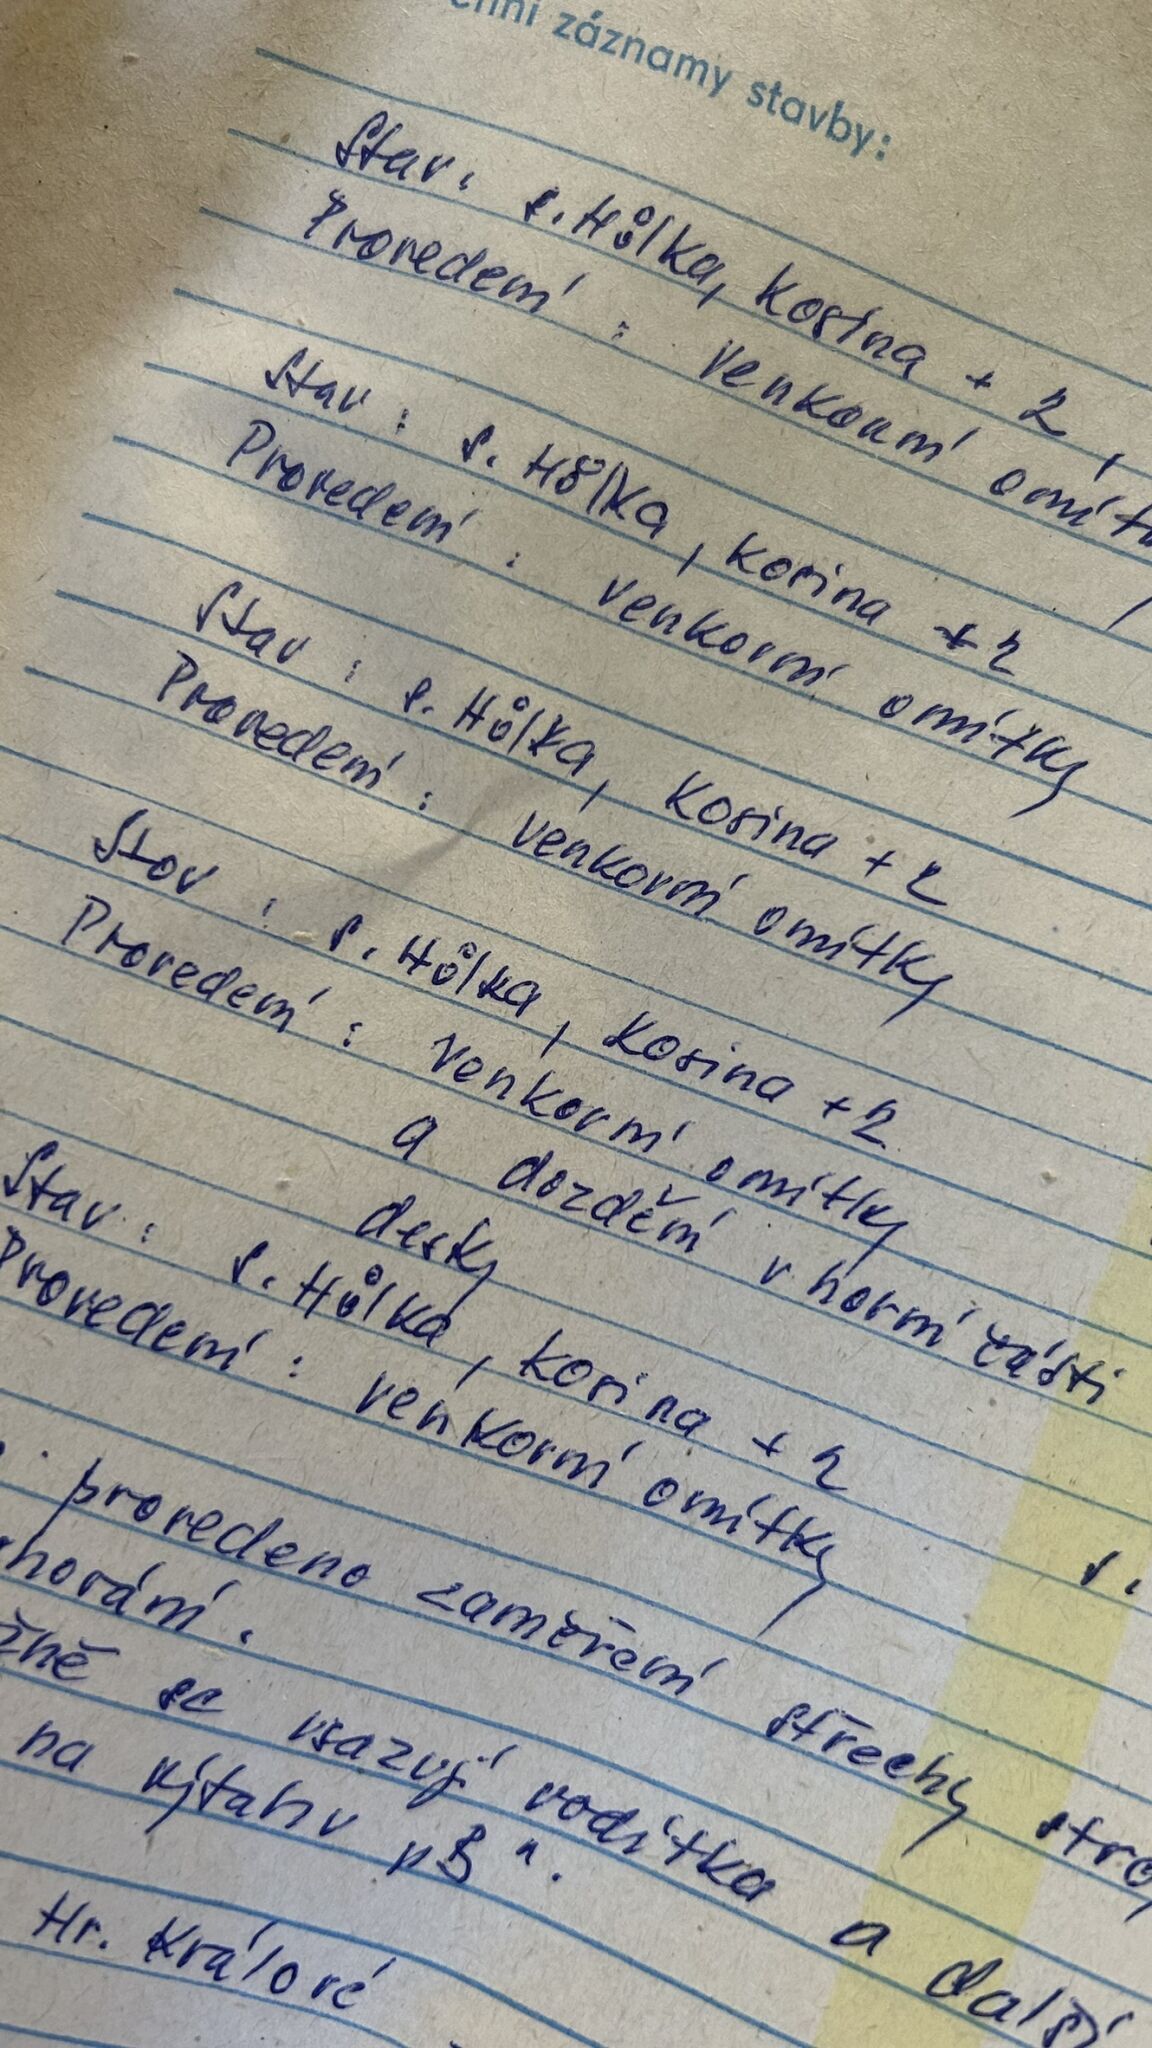 záznamy stavby:
Stav: s. Hůlka, Kosina + 2,
Provedení : venkovní
Stav : s. Hůlka, Kosina + 2
Provedení : venkovní omítky
Stav : s. Hůlka, Kosina + 2
Provedení : venkovní omítky
Stav : s. Hůlka, Kosina + 2
Provedení : venkovní omítky
a dozdění v horní části
desky
Stav : s. Hůlka, Kosina + 2
Provedení : venkovní omítky
s.
provedeno zaměření střechy
se vsazují vodítka a další
na výtahu "B".
Hr. Králové